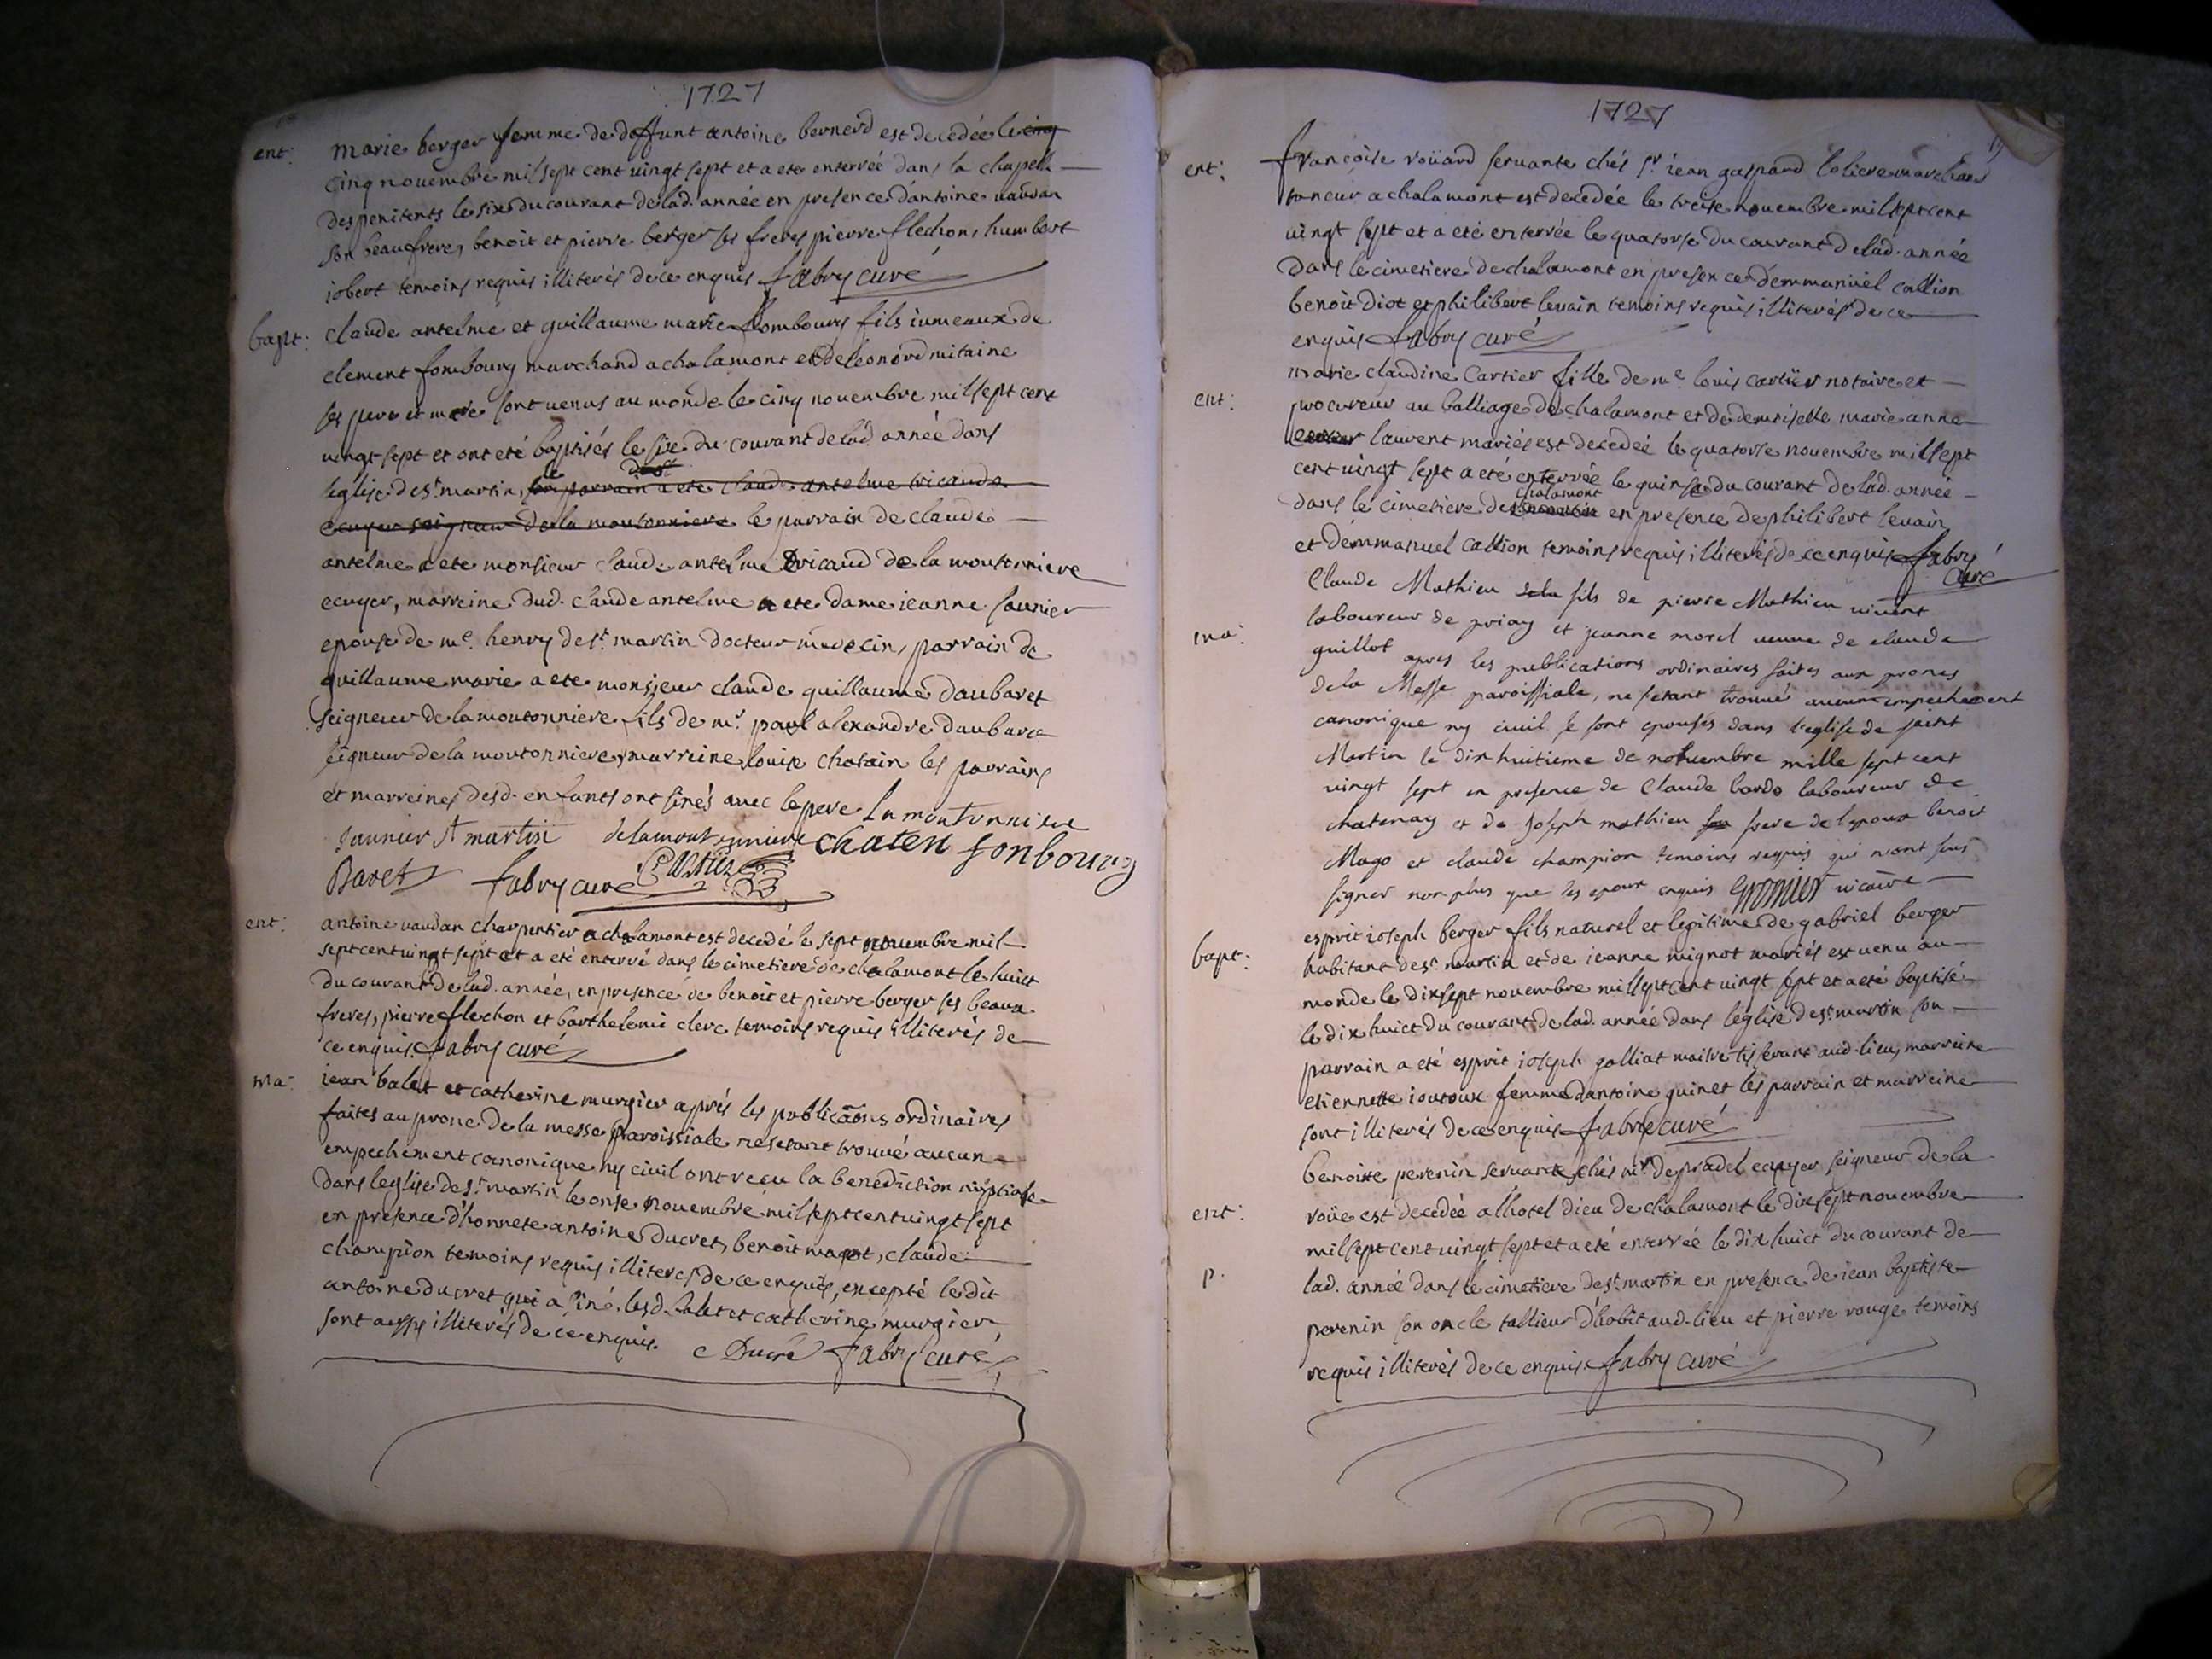 1727
ent: marie berger femme de deffunt antoine bernerd est decedée le cinq
cinq novembre mil sept cent vingt sept et a ete enterrée dans la chapelle
des penitents le six du courant de lad. année en presence d'antoine vaudan
son beaufrere, benoit et pierre berger ses freres pierre flechon, humbert
iobert temoins requis illiterés de ce enquis fabry curé
bapt: claude antelme et guillaume marie fombourg fils iumeaux de
clement fombourg marchand a chalamont et de leonord mitaine
ses pere et mere sont venus au monde le cinq novembre mil sept cent
vingt sept et ont eté baptisés le six du courant de lad. année dans
leglise de st. martin, parrain a ete claude antelme tricaud
ecuyer seigneur de la moutonniere le parrain de claude
antelme a ete monsieur claude antelme tricaud de la moutonniere
ecuyer, marreine dud. claude antelme a ete dame ieanne saunier
epouse de me. henry de st. martin docteur medecin, parrain de
guillaume marie a ete monsieur claude guillaume daubaret
seigneur de la moutonniere fils de mr. paul alexandre daubaret
seigneur de la moutonniere, marreine louise chatain les parrains
et marreines desd. enfants ont sinés avec le pere La moutonniere
saunier st martin delamoutonniere chaten fonbourg
Baret fabry curé
ent: antoine vaudan charpentier a chalamont est decedé le sept novembre mil
sept cent vingt sept et a eté enterré dans le cimetiere de chalamont le huict
du courant de lad. année, en presence de benoit et pierre berger ses beaux
freres, pierre flechon et barthelemie clerc temoins requis illiterés de
ce enquis. fabry curé
ma: iean balet et catherine murgier aprés les publicaõns ordinaires
faites au prone de la messe paroissiale ne se tant trouvé aucun
empechement canonique ny civil ont recu la benediction nuptiale
dans leglise de st. martin le onse novembre mil sept cent vingt sept
en presence d'honnete antoine ducret, benoit magot, claude
champion temoins requis illiterés de ce enquis, excepté le dit
antoine ducret qui a siné. lesd. balet et catherine murgier
sont aussy illiterés de ce enquis. Ducré fabry curé
1727
19
ent: francoise roüard servante chés sr. iean gaspard marchand
taneur a chalamont est decedée le treise novembre mil sept cent
vingt sept et a eté enterrée le quatorse du courant de lad. année
dans le cimetiere de chalamont en presence d'emmanuel callion
benoit diot et philibert levain temoins requis illiterés de ce
enquis fabry curé
ent: marie claudine Cartier fille de me. louis cartier notaire et
procureur au balliage de chalamont et de demoiselle marie anne
cartier laurent mariés est decedeé le quatorse novembre mil sept
cent vingt sept a eté enterrée le quinse du courant de lad. année
dans le cimetiere de chalamont en presence de philibert levain
et d'emmanuel callion temoins requis illiterés de ce enquis fabry
curé
ma: Claude Mathieu fils de pierre Mathieu vivant
laboureur de priay et jeanne morel veuve de claude
guillot apres les publications ordinaires faites aux prones
de la Messe paroissiale, ne setant trouvé aucun empechement
canonique ny civil se sont epousés dans l'eglise de saint
Martin le dix huitieme de novembre mille sept cent
vingt sept en presence de Claude bardo laboureur de
chatenay et de Joseph mathieu frere de lepoux benoit
Mago et claude champion temoins requis qui n'ont sceu
signer non plus que les epoux enquis Gromier vicaire
bapt: esprit ioseph berger fils naturel et legitime de gabriel berger
habitant de st. martin et de ieanne mignot mariés est venu au
monde le dix sept novembre mil sept cent vingt sept et a eté baptisé
le dix huict du courant de lad. année dans leglise de st. martin son
parrain a eté esprit ioseph galliat maitre tisserant aud. lieu, marreine
etiennette ioutoux femme dantoine guinet les parrain et marreine
sont illiterés de ce enquis fabry curé
ent: benoite perenin servante chés mr. de pradel ecuyer seigneur de la
roüe est decedée a lhotel dieu de chalamont le dix sept novembre
mil sept cent vingt sept et a eté enterrée le dix huict du courant de
p. lad. année dans le cimetiere de st. martin en presence de iean baptiste
perenin son oncle tallieur d'habit aud. lieu et pierre rouge temoins
requis illiterés de ce enquis fabry curé